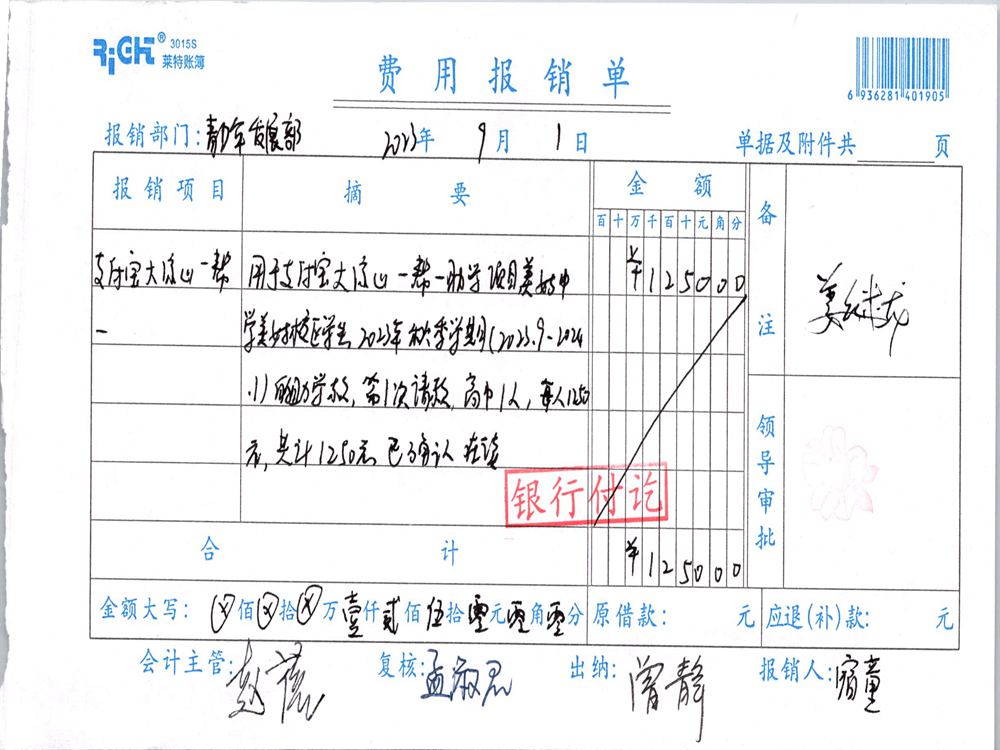 RiGHT® 3015S
莱特账簿
费用报销单
6 936281 401905
报销部门:青少年发展部 2023年 9月 1日 单据及附件共 页
报销项目 摘要 金额 备注
百十万千百十元角分
支付宝大凉山一帮一 用于支付宝大凉山一帮一助学项目美姑中 ¥125000
学美姑校区学生2023年秋季学期(2023.9-2024
.1)的助学款,第1次请款,高中1人,每人1250
元,共计1250元 已确认 在读
银行付讫
领导审批
合计 ¥125000
金额大写:ⓧ佰ⓧ拾ⓧ万壹仟贰佰伍拾零元零角零分 原借款: 元 应退(补)款: 元
会计主管: 复核:孟淑君 出纳:曾静 报销人: